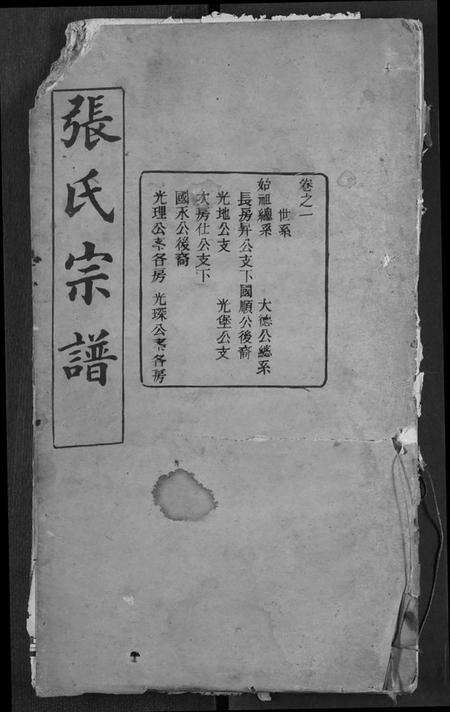 張氏宗譜
卷之一
世系
始祖總系 大德公總系
長房昇公支下國順公後裔
光地公支 光堡公支
次房仕公支下
國永公後裔
光理公本各房 光琛公本各房